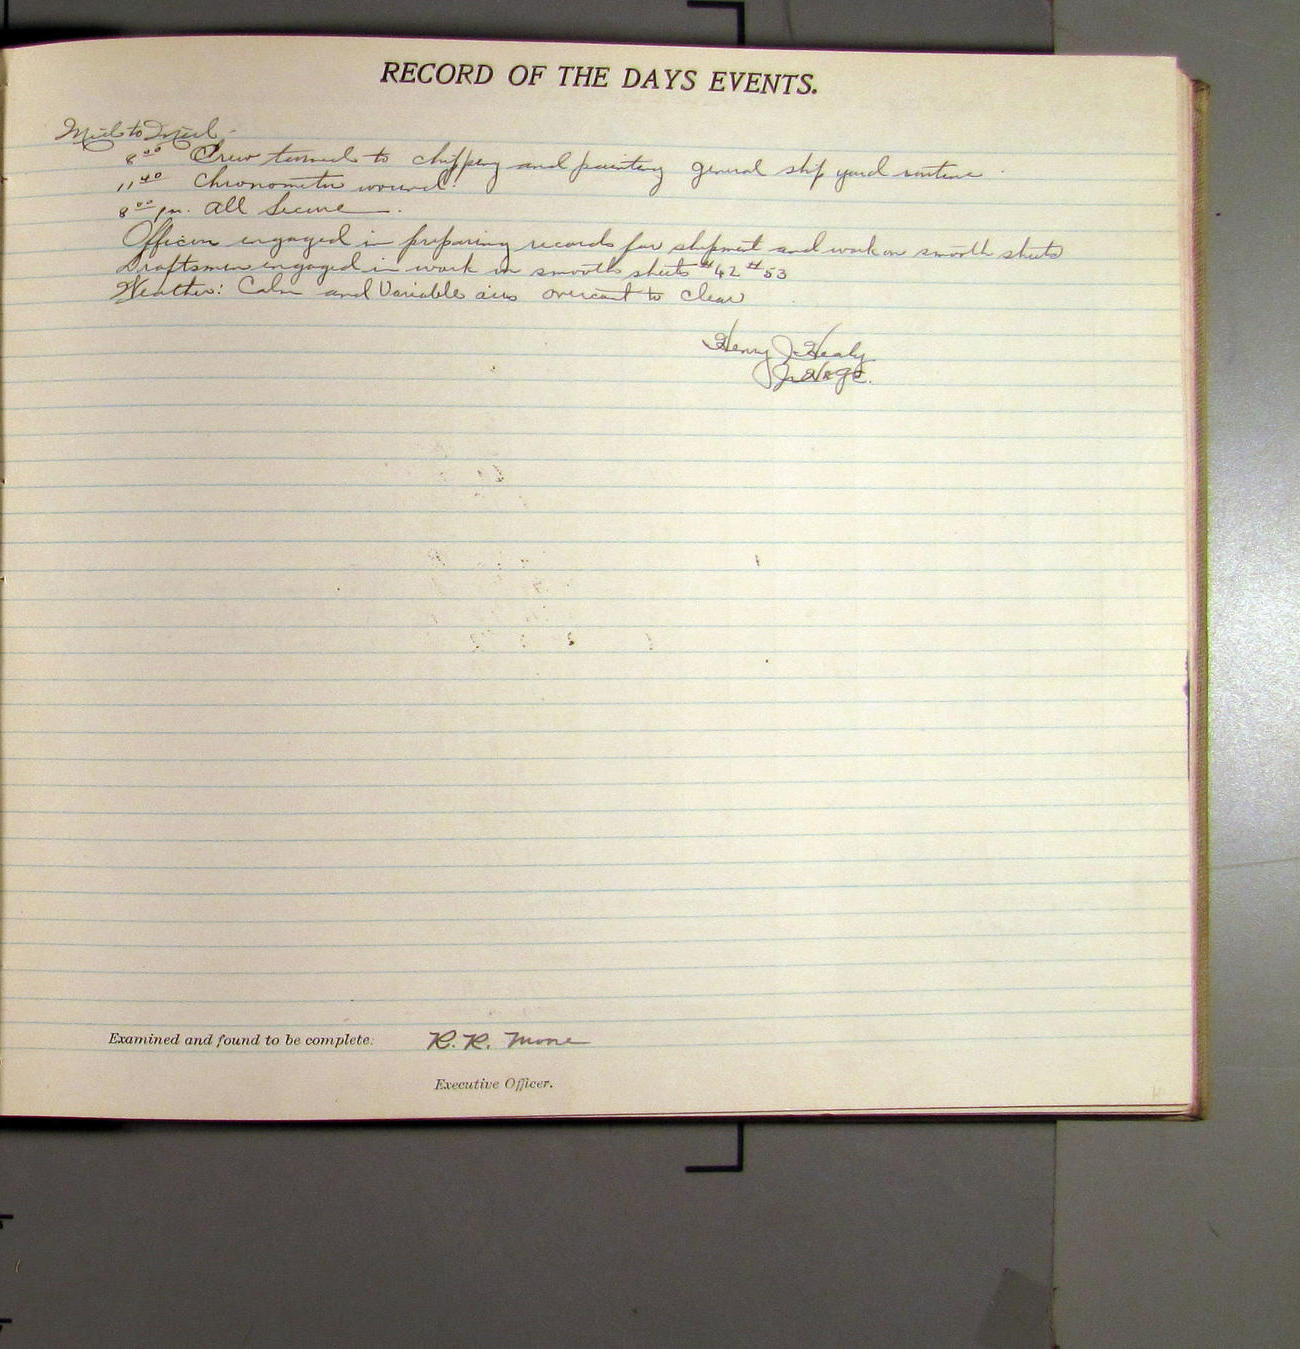 RECORD OF THE DAYS EVENTS.
Mid to Mid.-
8⁰⁰ Crew turned to chipping and painting general ship yard routine.
11⁴⁰ Chronometer wound.
8⁰⁰ p.m. All Secure.
Officers engaged in preparing records for shipment and work on smooth sheets
Draftsmen engaged in work on smooth sheets #42 #53
Weather: Calm and Variable airs overcast to clear
Henry J. Healy
Jr. H. & G. E.
Examined and found to be complete:
R. R. Moore
Executive Officer.